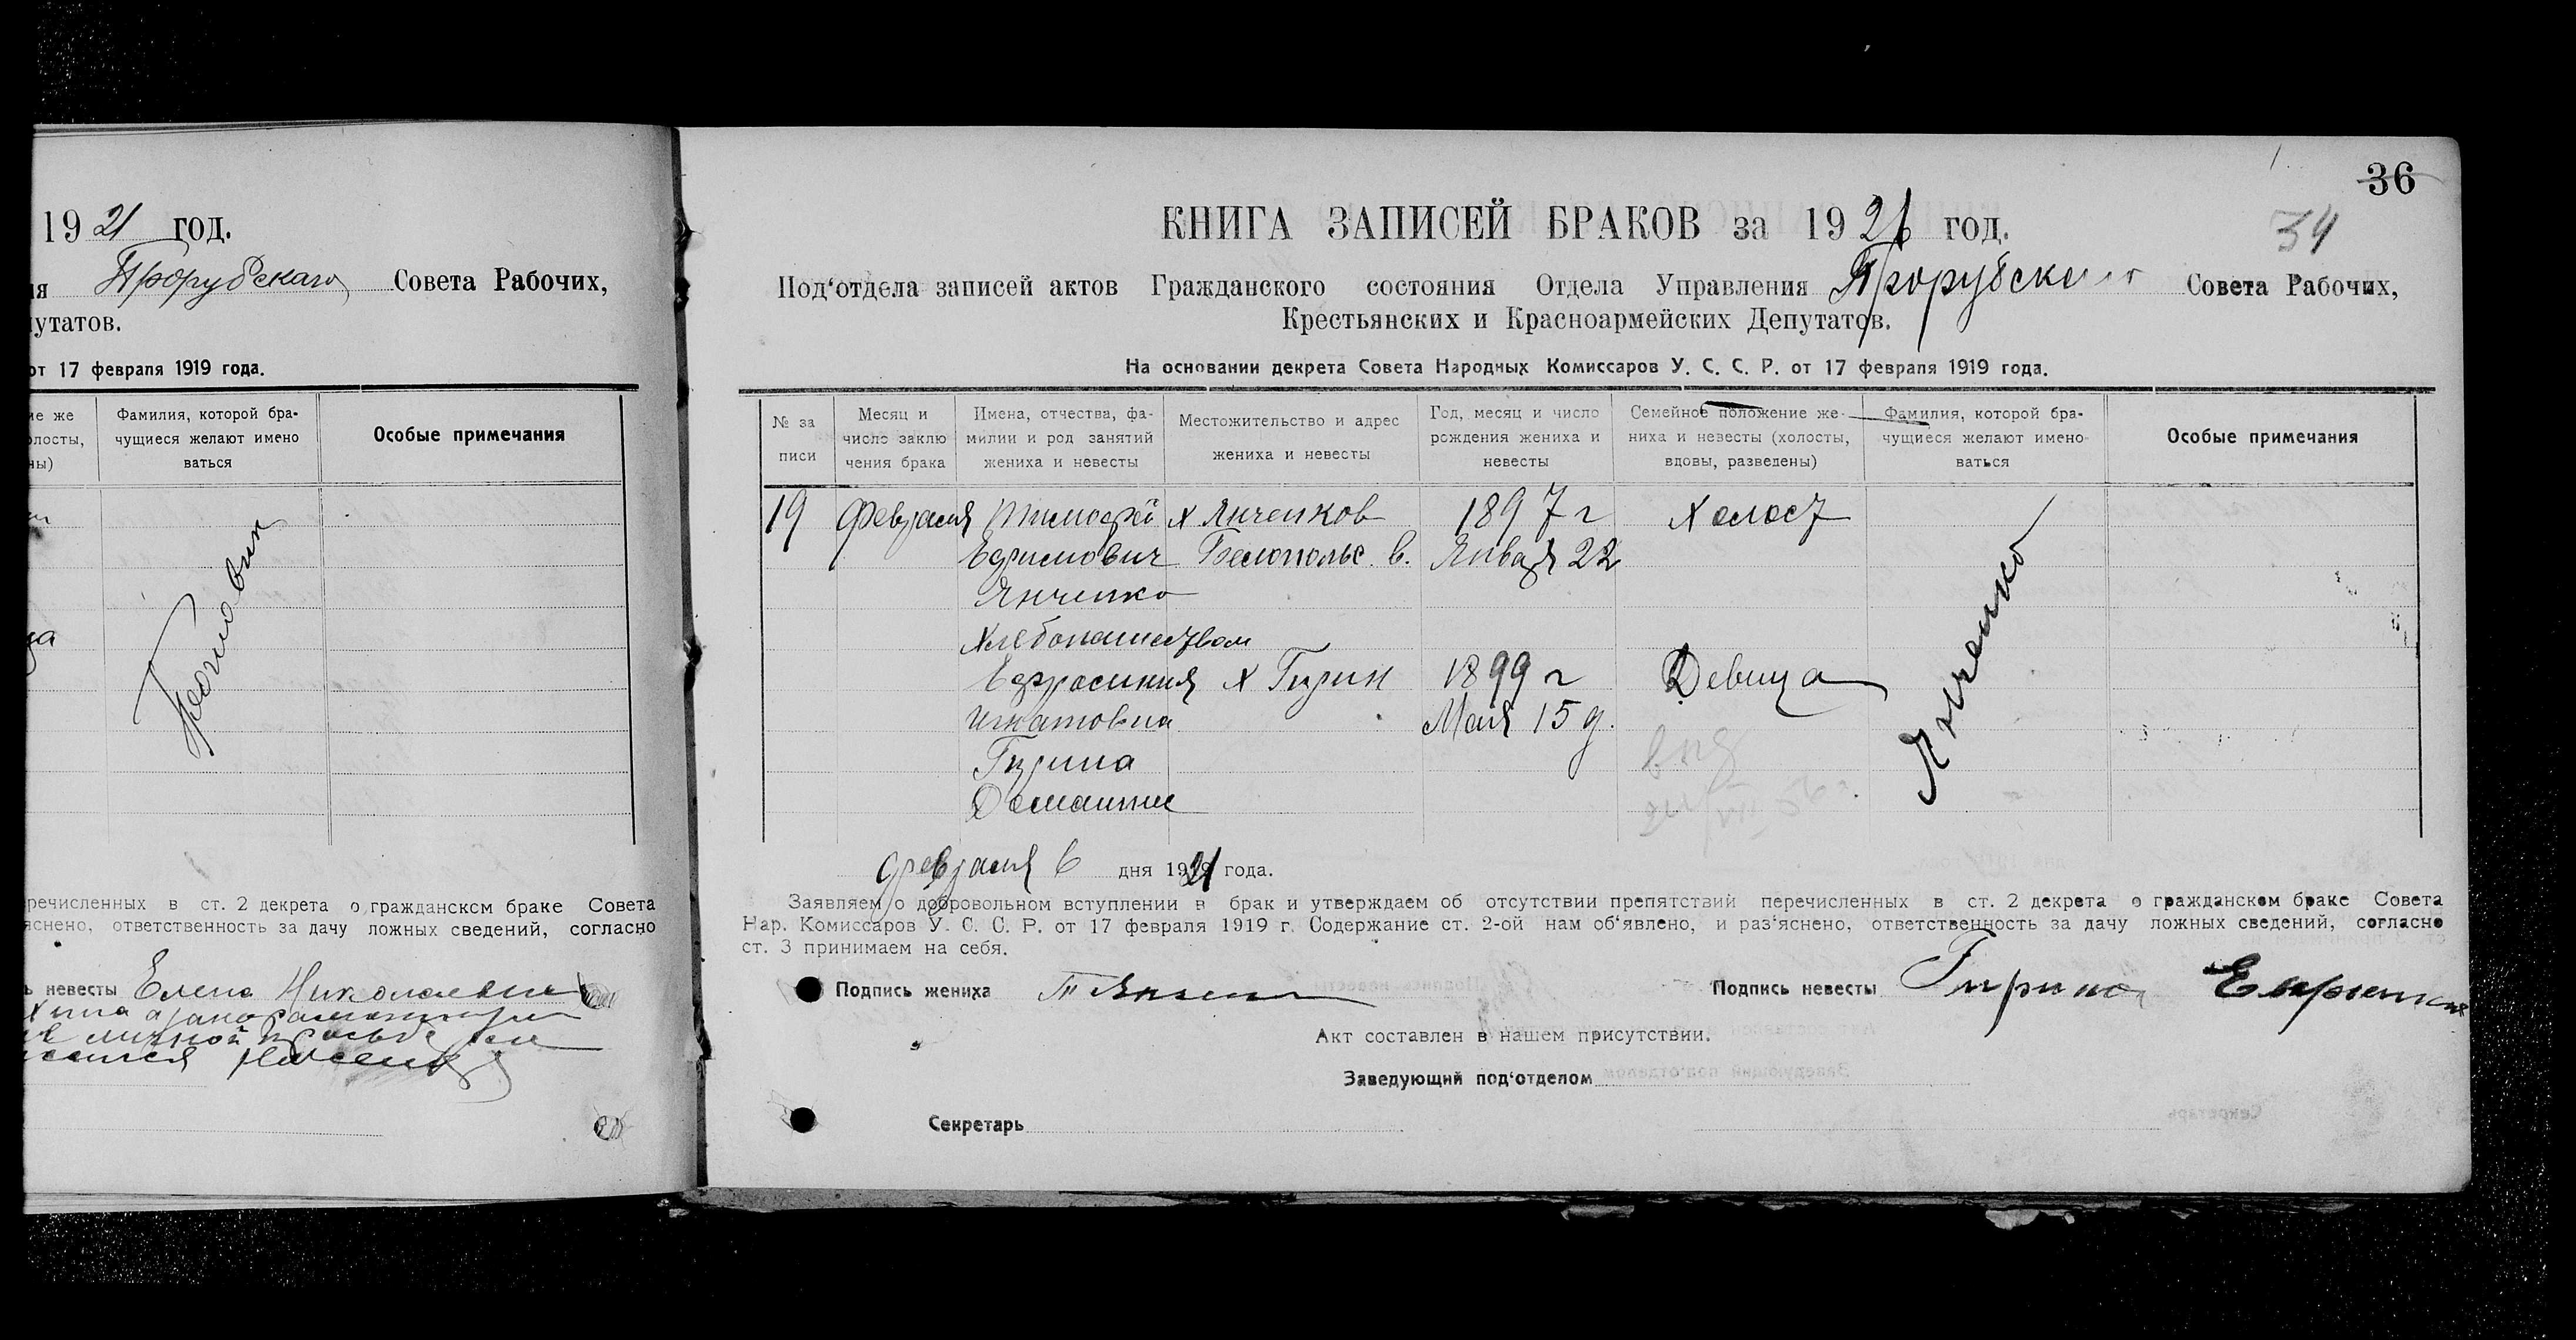 1921 год.
Прорубскаго Совета Рабочих,
путатов.
от 17 февраля 1919 года.
Фамилия, которой бра-
чущиеся желают имено
ваться
Особые примечания
речисленных в ст. 2 декрета о гражданском браке Совета
яснено, ответственность за дачу ложных сведений, согласно
невесты Елена Николаевна
36
34
КНИГА ЗАПИСЕЙ БРАКОВ за 1921 год.
Под‘отдела записей актов Гражданского состояния Отдела Управления Прорубского Совета Рабочих,
Крестьянских и Красноармейских Депутатов.
На основании декрета Совета Народных Комиссаров У. С. С. Р. от 17 февраля 1919 года.
№ за
писи
Месяц и
число заклю
чения брака
Имена, отчества, фа-
милии и род занятий
жениха и невесты
Местожительство и адрес
жениха и невесты
Год, месяц и число
рождения жениха и
невесты
Семейное положение же-
ниха и невесты (холосты,
вдовы, разведены)
Фамилия, которой бра-
чущиеся желают имено-
ваться
Особые примечания
19 Февраля Тимофей х Янченков 1897 г Холост
Ефимович Белопольс. в. Января 22
Янченко
Хлебопашеством
Янченко
Ефросиния х Гирин 1899 г Девица
Игнатовна Мая 15 д.
Гирина
Домашние
февраля 6 дня 1921 года.
Заявляем о добровольном вступлении в брак и утверждаем об отсутствии препятствий перечисленных в ст. 2 декрета о гражданском браке Совета
Нар. Комиссаров У. С. С. Р. от 17 февраля 1919 г. Содержание ст. 2-ой нам об‘явлено, и раз‘яснено, ответственность за дачу ложных сведений, согласно
ст. 3 принимаем на себя.
Подпись жениха
Подпись невесты Гирина
Акт составлен в нашем присутствии.
Заведующий под‘отделом
Секретарь